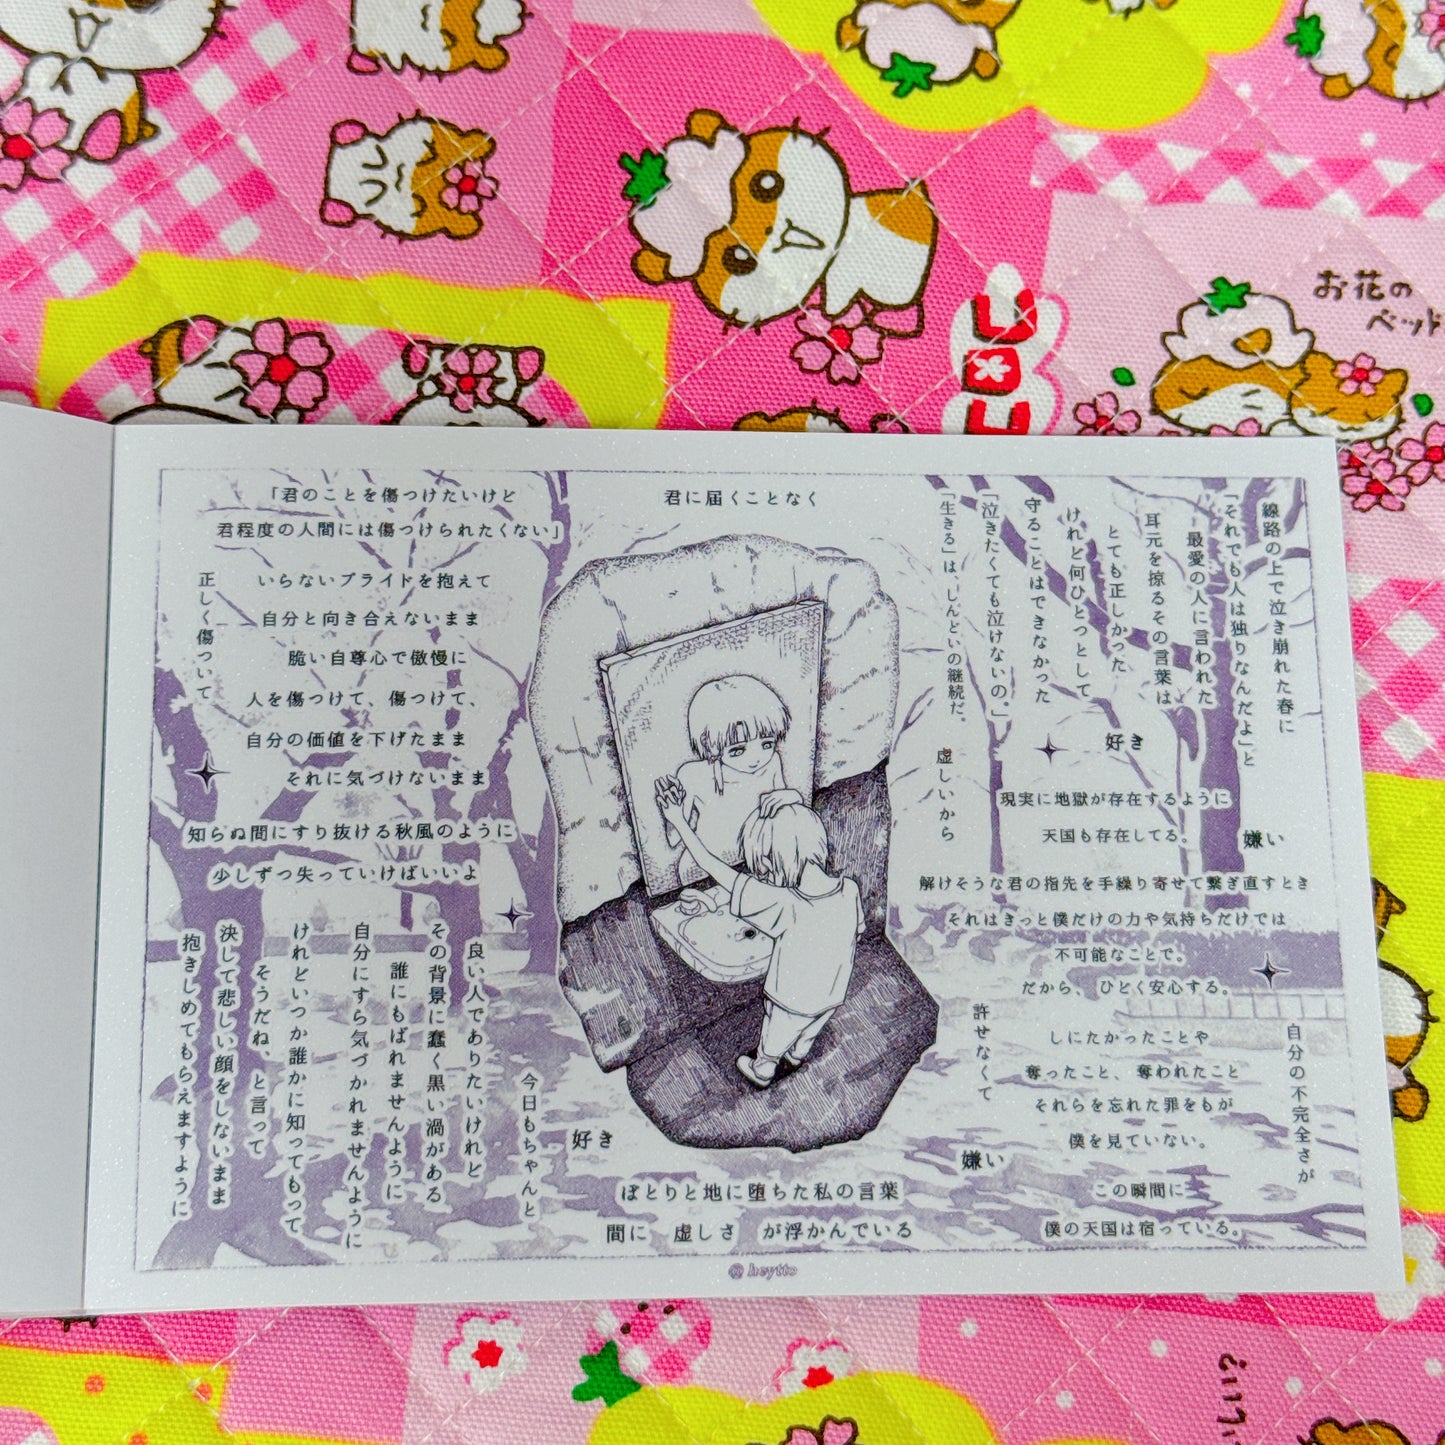 お花の
ベッド
コロコ
「君のことを傷つけたいけど
君程度の人間には傷つけられたくない」
正しく傷ついて
いらないプライドを抱えて
自分と向き合えないまま
脆い自尊心で傲慢に
人を傷つけて、傷つけて、
自分の価値を下げたまま
それに気づけないまま
知らぬ間にすり抜ける秋風のように
少しずつ失っていけばいいよ
君に届くことなく
線路の上で泣き崩れた春に
「それでも人は独りなんだよ」と
最愛の人に言われた
耳元を掠るその言葉は
とても正しかった
けれど何ひとつとして
守ることはできなかった
「泣きたくても泣けないの。」
「生きる」は、しんどいの継続だ。
虚しいから
好き
現実に地獄が存在するように
天国も存在してる。
嫌い
解けそうな君の指先を手繰り寄せて繋ぎ直すとき
それはきっと僕だけの力や気持ちだけでは
不可能なことで。
だから、ひどく安心する。
許せなくて
しにたかったことや
奪ったこと、奪われたこと
それらを忘れた罪をもが
僕を見ていない。
自分の不完全さが
嫌い
この瞬間に
僕の天国は宿っている。
今日もちゃんと
良い人でありたいけれど
その背景に蠢く黒い渦がある
誰にもばれませんように
自分にすら気づかれませんように
けれどいつか誰かに知ってもらって
そうだね、と言って
決して悲しい顔をしないまま
抱きしめてもらえますように
好き
ぽとりと地に堕ちた私の言葉
間に 虚しさ が浮かんでいる
@ heytto